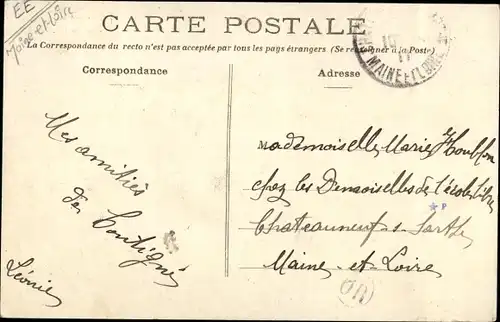 EE
Maine-et-Loire
CARTE POSTALE
La Correspondance du recto n'est pas acceptée par tous les pays étrangers (Se renseigner à la Poste)
Correspondance
Adresse
MAINE ET LOIRE
Mes amitiés
de Contigné
Léonie
Mademoiselle Marie
chez les Demoiselles de l'école libre
Chateauneuf-s-Sarthe
Maine-et-Loire